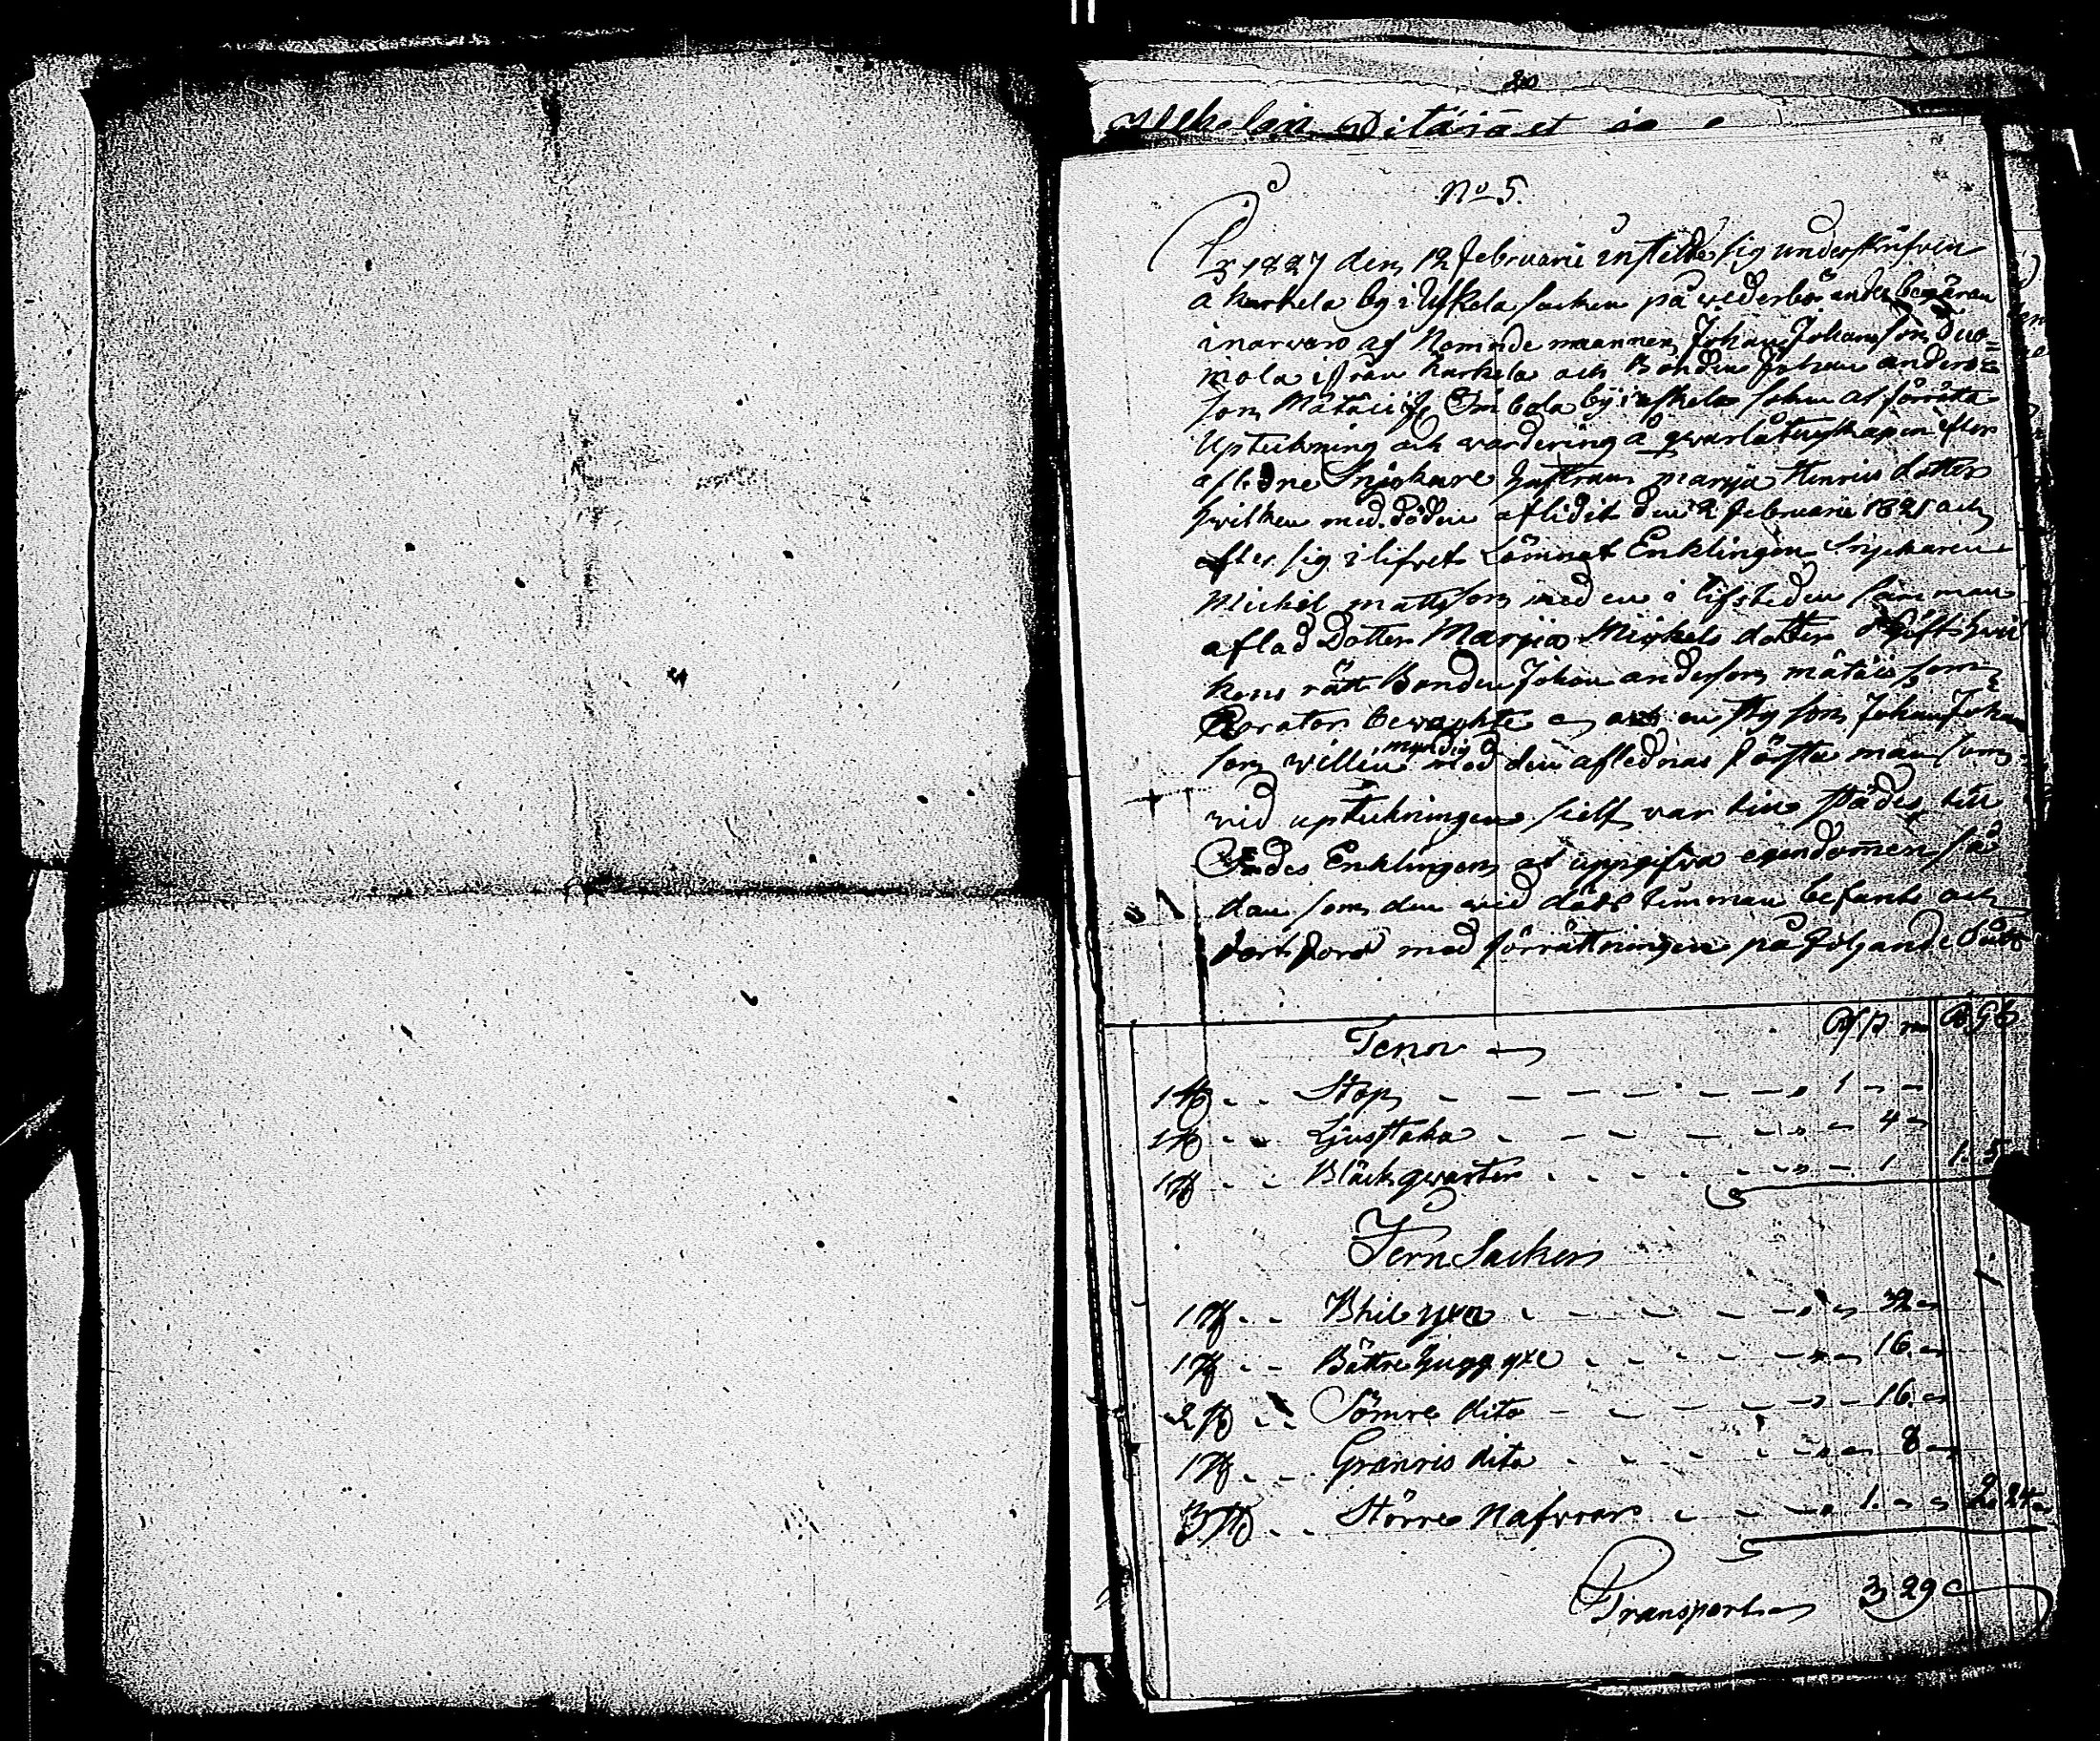 No 5.
År 1827 den 12 Februarii instelde sig underskrifven
å Karkela by i Uskela socken på vederbörandes begäran
i narvaro af Nämnde mannen Johan Johansson Tuo=
mola ifrån Karkela och Bonden Johan anders=
son Mätäis by i uskela sokn at förrätta
Upteckning och vardering å qvarlåtenskapen efter
aflidne Snickare hustrun marija Henrics dotter
hvilken med döden aflidit den 2 Februarii 1821 och
efter sig i lifvet Lämnat Enklingen Snickaren
Mickel mattsson med en i lifstiden samman
aflad Dotter Marjia Mickels dotter ogift hvil
kens rätt Bonden Johan andersson mätäis som
Korator bevackte och en styfson Johan Johan
son willen myndig med den aflednas första man som
vid upteckningen sielf var till städes till
Sades Enklingen at uppgifva egendomen så
dan som den vid döds timman befants och
fortfore med förrättningen på följande sätt
Tenn
1 St .. Stop 1
1 St .. Ljusstaka 4
1 St .. Bläck qvarter 1 1. 5
Jern Sacker
1 St .. Bhil yxa 32
1 St .. Bättre hugg yxe 16
2 St .. Sämre dito 16
1 St .. Granris dito 8
3 St .. Större Nafvrar 1. 2. 24
Transport 3 29